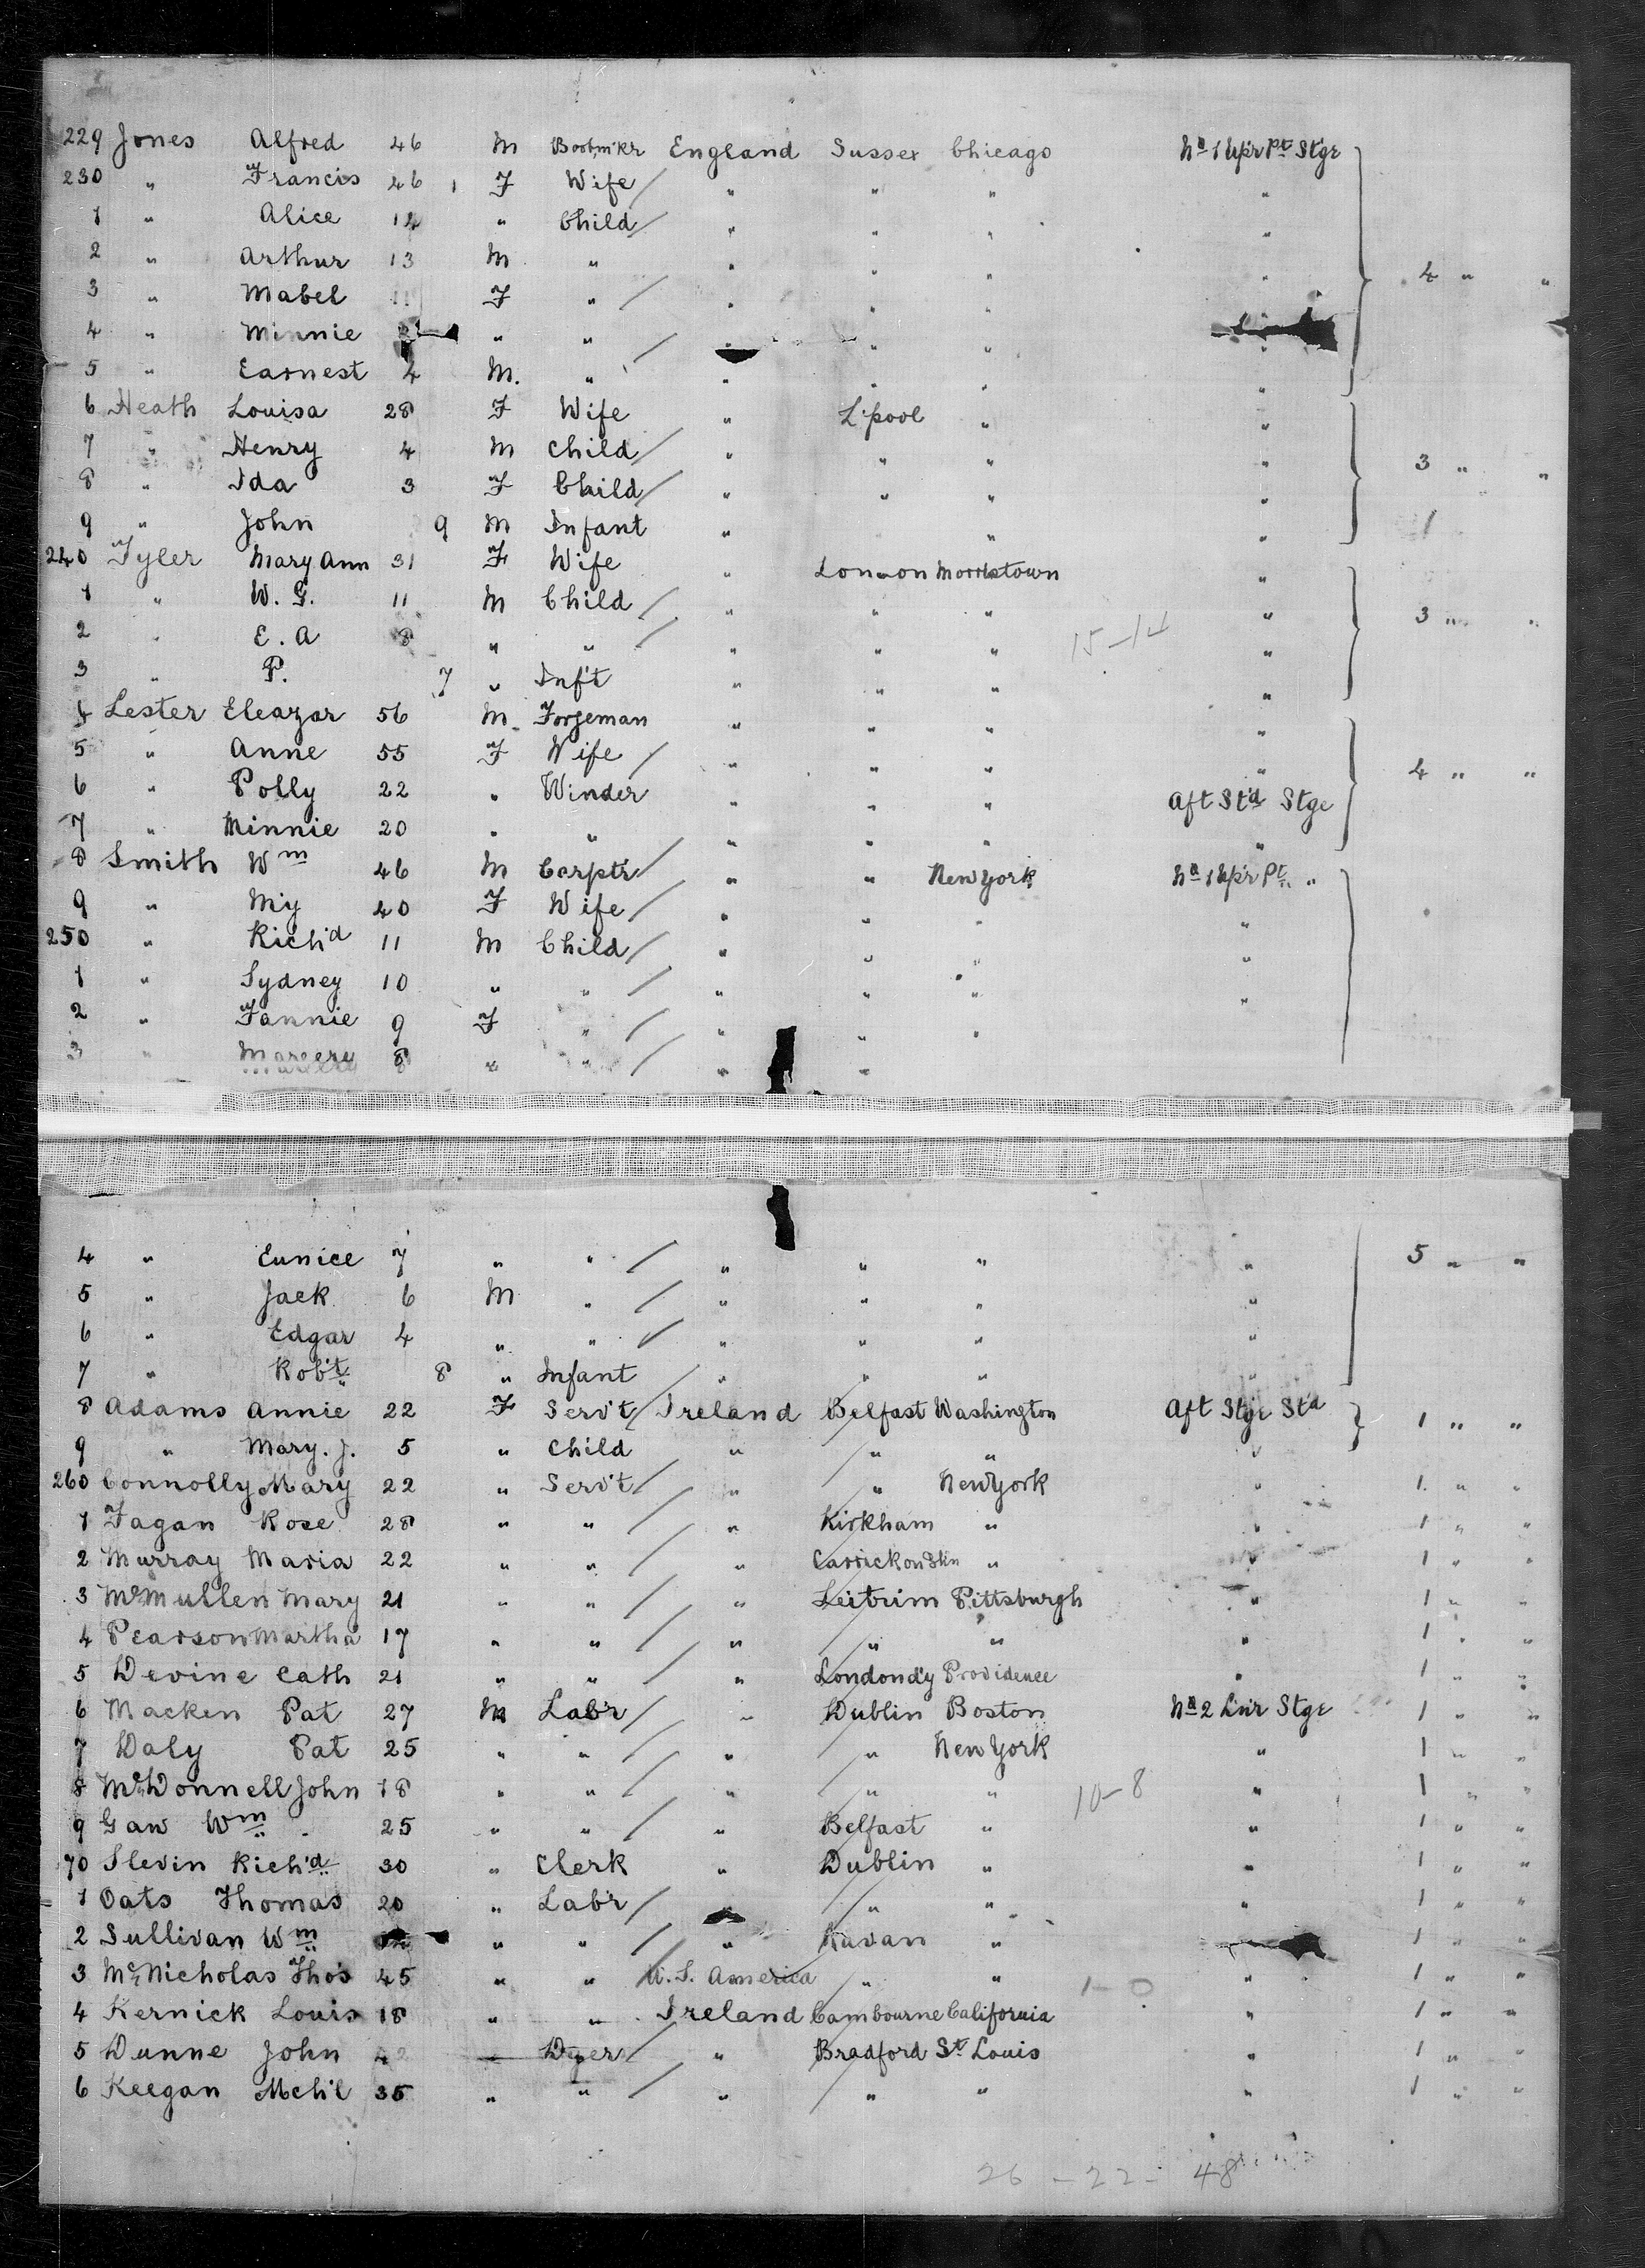 229 Jones Alfred 46 M Bootm'kr England Sussex Chicago No 1 Up'r Pt Stge
230 " Francis 46 F Wife / " " " "
1 " Alice 14 " Child / " " " "
2 " Arthur 13 M " " " " " 4 " "
3 " Mabel 11 F " / " " "
4 " Minnie " " / " " " "
5 " Earnest 4 M. " " " " "
6 Heath Louisa 28 F Wife " L'pool " "
7 " Henry 4 M Child / " " " " 3 " "
8 " Ida 3 F Child / " " " "
9 " John 9 M Infant " " " 1
240 Tyler Mary Ann 31 F Wife " London Morristown "
1 " W. G. 11 M Child / " " " " 3 " "
2 " E. A 8 " " / " " " 15-14 "
3 " P. 7 " Inf't " " " "
4 Lester Eleazar 56 M Forgeman " " " "
5 " Anne 55 F Wife / " " " " 4 " "
6 " Polly 22 " Winder " " " Aft St'd Stge
7 " Minnie 20 " " " " " "
8 Smith Wm 46 M Carpt'r / " " New York No 1 Up'r Pt "
9 " My 40 F Wife / " " " "
250 " Rich'd 11 M Child / " " " "
1 " Sydney 10 " " / " " " "
2 " Fannie 9 F " / " " "
3 " Margery 8 " " / " "
4 " Eunice 7 " " / " " " " 5 " "
5 " Jack 6 M " / " " " "
6 " Edgar 4 " " / " " " "
7 " Rob't 8 " Infant " " " "
8 Adams Annie 22 F Serv't / Ireland Belfast Washington Aft Stge St'd 1 " "
9 " Mary. J. 5 " Child " " " "
260 Connolly Mary 22 " Serv't / " " New York " 1 " "
1 Fagan Rose 28 " " / " Kirkham " " 1 " "
2 Murray Maria 22 " " / " Carrick on Shn " " 1 " "
3 McMullen Mary 21 " " / " Leitrim Pittsburgh " 1 " "
4 Pearson Martha 17 " " / " " " " 1 " "
5 Devine Cath 21 " " / " Londond'y Providence " 1 " "
6 Macken Pat 27 M Lab'r / " Dublin Boston No 2 Lw'r Stge 1 " "
7 Daly Pat 25 " " / " " New York " 1 " "
8 McDonnell John 18 " " / " " " 10-8 " 1 " "
9 Gaw Wm 25 " " / " Belfast " " 1 " "
70 Slevin Rich'd 30 " Clerk " Dublin " " 1 " "
1 Oats Thomas 20 " Lab'r / " " " " 1 " "
2 Sullivan Wm " " / " " 1 " "
3 McNicholas Tho's 45 " " / U. S. America " " 1-0 " 1 " "
4 Kernick Louis 18 " " Ireland Cambourne California " 1 " "
5 Dunne John 42 " Dyer / " Bradford St Louis " 1 " "
6 Keegan Mch'l 35 " " / " " " " 1 " "
26 - 22 - 48